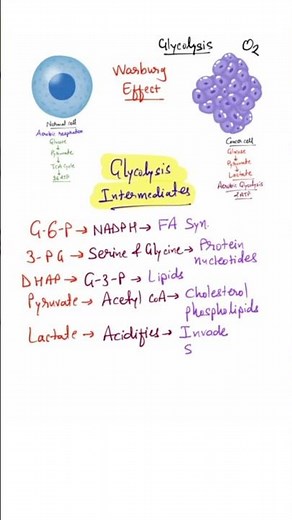 Glycolysis O2
Warburg
Effect
Normal cell
Aerobic respiration
Glucose
Pyruvate
TCA Cycle
36 ATP
Cancer cell
Glucose
Pyruvate
Lactate
Aerobic Glycolysis
2 ATP
Glycolysis
Intermediates
G-6-P → NADPH → FA Syn.
3-PG → Serine & Glycine → Protein
nucleotides
DHAP → G-3-P → Lipids
Pyruvate → Acetyl CoA → Cholesterol
phospholipids
Lactate → Acidifies → Invade
S